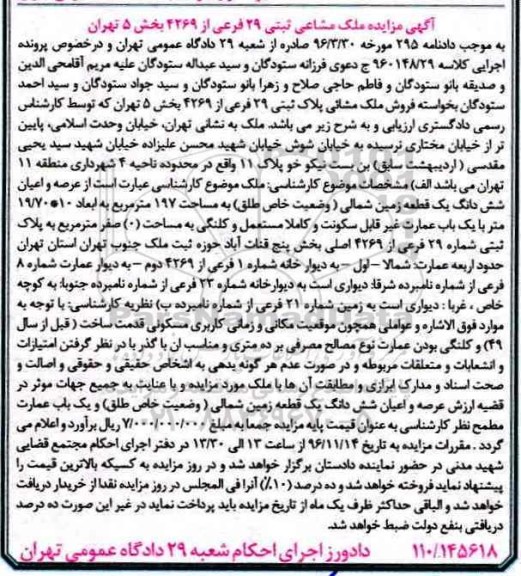 آگهی مزایده ملک مشاعی ثبتی ۲۹ فرعی از ۴۲۶۹ بخش ۵ تهران
به موجب دادنامه ۲۹۵ مورخه ۹۶/۳/۳۰ صادره از شعبه ۲۹ دادگاه عمومی تهران و درخصوص پرونده
اجرایی کلاسه ۹۶۰۱۴۸/۲۹ ج دعوی فرزانه ستودگان و سید عبداله ستودگان علیه مریم آقامحی الدین
و صدیقه بانو ستودگان و فاطم حاجی صلاح و زهرا بانو ستودگان و سید جواد ستودگان و سید احمد
ستودگان بخواسته فروش ملک مشاعی پلاک ثبتی ۲۹ فرعی از ۴۲۶۹ بخش ۵ تهران که توسط کارشناس
رسمی دادگستری ارزیابی و به شرح زیر می باشد. ملک به نشانی تهران، خیابان وحدت اسلامی، پایین
تر از خیابان مختاری نرسیده به خیابان شوش خیابان شهید محسن علیزاده خیابان شهید سید یحیی
مقدسی ( اردیبهشت سابق) بن بست نیکو خو پلاک ۱۱ واقع در محدوده ناحیه ۴ شهرداری منطقه ۱۱
تهران می باشد الف) مشخصات موضوع کارشناسی: ملک موضوع کارشناسی عبارت است از عرصه و اعیان
شش دانگ یک قطعه زمین شمالی ( وضعیت خاص طلق) به مساحت ۱۹۷ مترمربع به ابعاد ۱۰*۱۹/۷۰
متر با یک باب عمارت غیر قابل سکونت و کاملا مستعمل و کلنگی به مساحت (۰) صفر مترمربع به پلاک
ثبتی شماره ۲۹ فرعی از ۴۲۶۹ اصلی بخش پنج قنات آباد حوزه ثبت ملک جنوب تهران استان تهران
حدود اربعه عمارت: شمالا – اول – به دیوار خانه شماره ۱ فرعی از ۴۲۶۹ دوم – به دیوار عمارت شماره ۸
فرعی از شماره نامبرده شرقا: دیواری است به دیوارخانه شماره ۲۳ فرعی از شماره نامبرده جنوبا: به کوچه
خاص ، غربا : دیواری است به زمین شماره ۲۱ فرعی از شماره نامبرده ب) نظریه کارشناسی: با توجه به
موارد فوق الاشاره و عواملی همچون موقعیت مکانی و زمانی کاربری مسکونی قدمت ساخت ( قبل از سال
۴۹) و کلنگی بودن عمارت نوع مصالح مصرفی بر ده متری و مناسب ان با گذر با در نظر گرفتن امتیازات
و انشعابات و متعلقات مربوطه و در صورت عدم هر گونه بدهی به اشخاص حقیقی و حقوقی و اصالت و
صحت اسناد و مدارک ابرازی و مطابقت آن ها با ملک مورد مزایده و با عنایت به جمیع جهات موثر در
قضیه ارزش عرصه و اعیان شش دانگ یک قطعه زمین شمالی ( وضعیت خاص طلق) و یک باب عمارت
مطمح نظر کارشناسی به عنوان قیمت پایه مزایده جمعا به مبلغ ریال برآورد و اعلام می
گردد . مقررات مزایده به تاریخ ۹۶/۱۱/۱۴ از ساعت ۱۳ الی ۱۳/۳۰ در دفتر اجرای احکام مجتمع قضایی
شهید مدنی در حضور نماینده دادستان برگزار خواهد شد و در روز مزایده به کسیکه بالاترین قیمت را
پیشنهاد نماید فروخته خواهد شد و ده درصد (۱۰٪) آنرا فی المجلس در روز مزایده نقدا از خریدار دریافت
خواهد شد و الباقی حداکثر ظرف یک ماه از تاریخ مزایده باید پرداخت نماید در غیر این صورت ده درصد
دریافتی بنفع دولت ضبط خواهد شد.
۱۱۰/۱۴۵۶۱۸ دادورز اجرای احکام شعبه ۲۹ دادگاه عمومی تهران